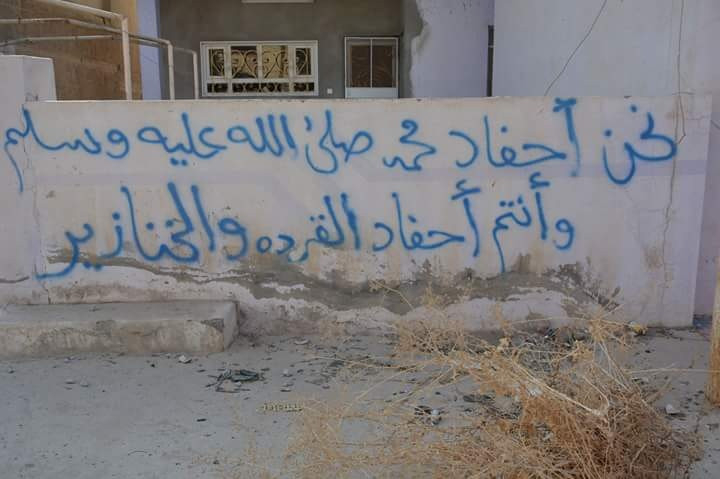 نحن أحفاد محمد صلى الله عليه وسلم
وأنتم أحفاد القرده والخنازير